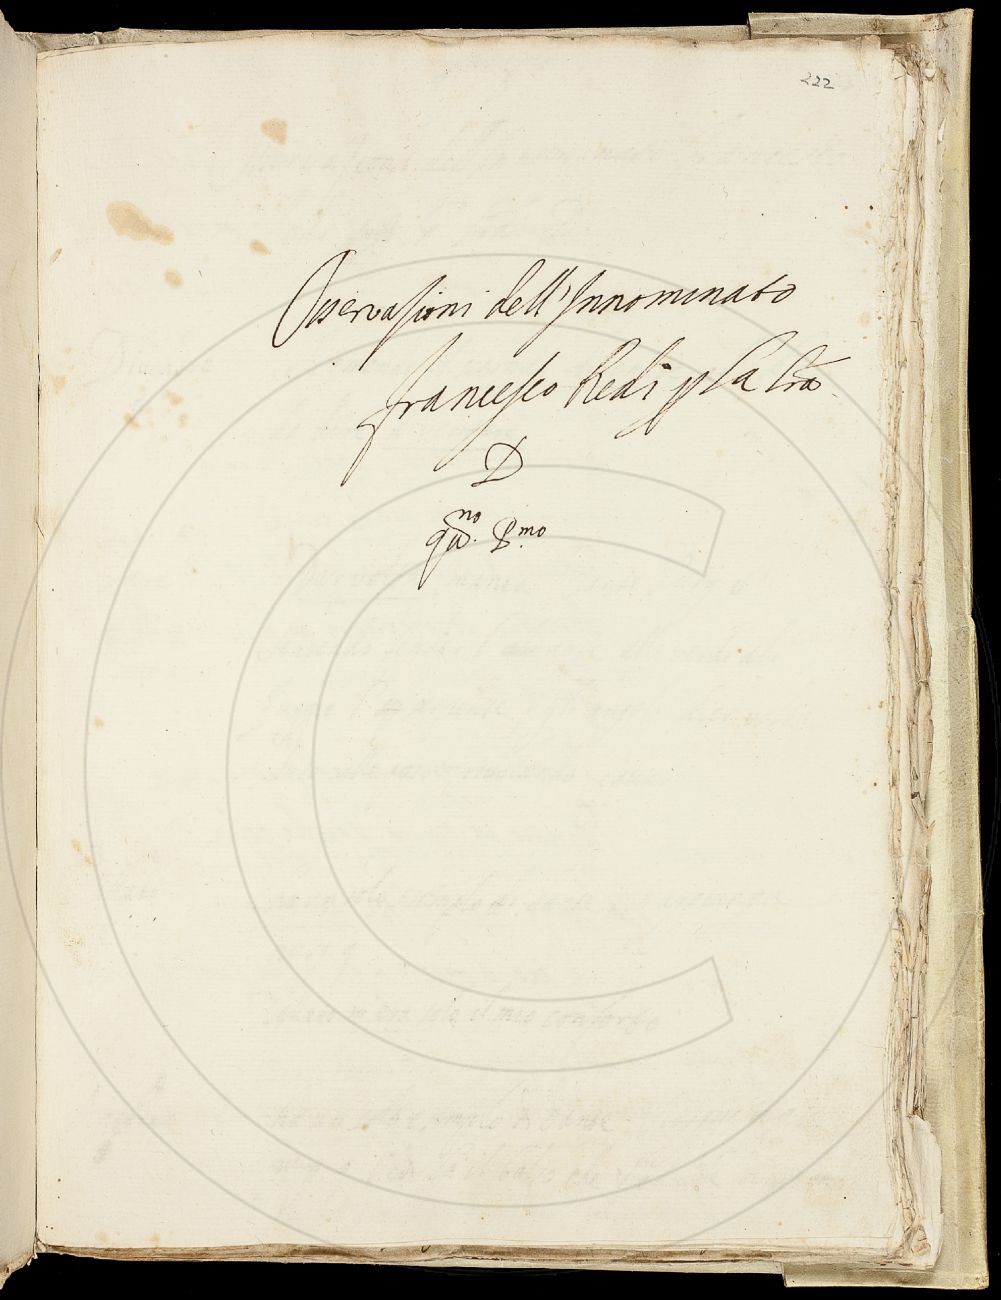 222
Osservasioni dell'Innominato
Francesco Redi p la lrã
D
qũno. Pmo